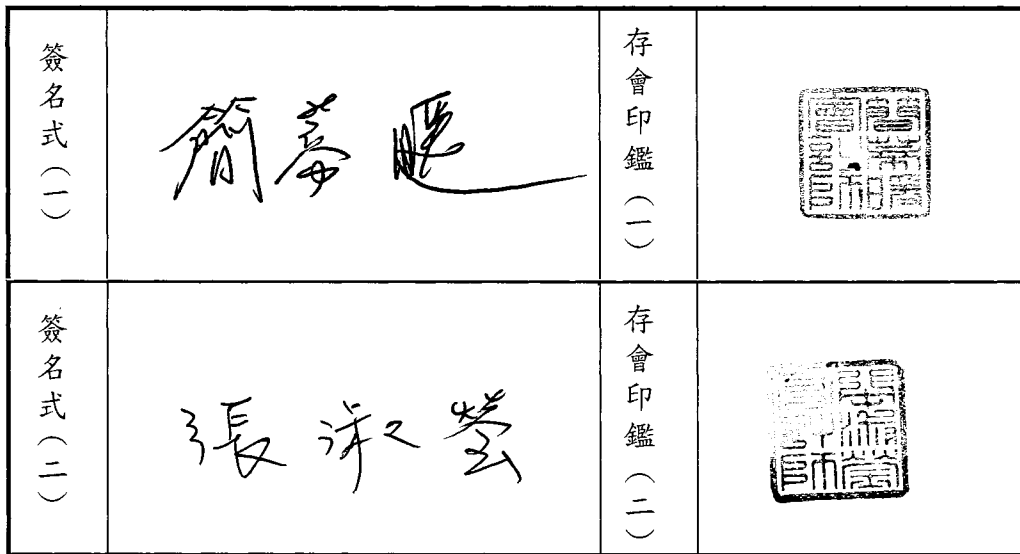 簽名式（一）
簡蒂暖
存會印鑑（一）
簽名式（二）
張淑瑩
存會印鑑（二）